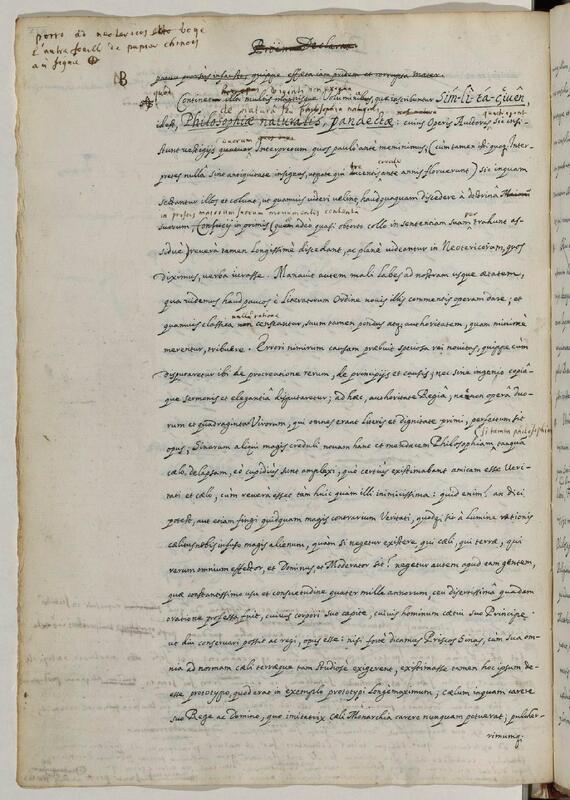 porro ad neotericos
l'antra foeill de papier chinois
au signe
B
parum prorsus infaustus quippe effæta iam pridem et corrupta mater.
Continetur illa multis Voluminibus, quæ inscribuntur Sím-lì-tá-çiuên,
viginti non exigua
de natura seu philosophia naturali
id est, Philosophiæ naturalis pandectæ: cuius Operis Auctores, sic insi-
stunt vestigijs Interpretum quos paulò ante meminimus, (cùm tamen ibi quoq; Inter-
pretes nullâ sint antiquitate insignes, utpote qui ducentis ante annis floruerunt) sic inquam
sectantur illos et colunt, ut quamvis videri velint haudquaquam discedere à doctrinâ Maiorum
in priscis maiorum suorum monumentis contenta
suorum (Confucij in primis quem adeo quasi obtorto collo in sententiam suam trahunt as-
siduè) reverà tamen longissimè discedant, ac planè videantur in Neotericorum, quos
diximus, verba iurasse. Manavit autem mali labes ad nostram usque ætatem,
qua videmus haud paucos è Literatorum Ordine novis illis commentis operam dare; et
nullâ ratione
quamvis classica non censeantur, suum tamen pondus atq; authoritatem, quam minimè
merentur, tribuere. Errori nimirum causam præbuit speciosa rei novitas, quippe cùm
disputaretur ibi de procreatione rerum, de principijs et causis; nec sine ingenio copia-
que sermonis et elegantiâ disputaretur; ad hæc, authoritate Regiâ, necnon operâ duo-
rum et quadraginta Virorum, qui omnes erant literis et dignitate primi, perfectum sit
opus; Sinarum aliqui magis creduli novam hanc et mendacem Philosophiam, tanquã
cælo delapsam, eò cupidius sunt amplexi, quò certius existimabant amicam esse Veri-
tati et cælo, cum reverà esset tam huic quam illi inimicissima: quid enim? an dici
potest, aut etiam fingi quidquam magis contrarium Veritati, quodq; sit à lumine rationis
cælitus nobis infuso magis alienum, quàm si negetur existere, qui cæli, qui terræ, qui
rerum omnium effector, et Dominus et Moderator sit? negetur autem apud eam gentem,
quæ constantissimo usu et consuetudine quater mille annorum, ceu disertissimâ quadam
oratione professa fuit, cuivis corpori suo capite, cuivis hominum cætui suo Principe
ut diu conservari possit ac regi, opus esse: nisi fortè dicamus Priscos Sinas, cùm sua om-
nia ad normam cæli terræque tam studiosè exigerent, existimasse tamen hoc ipsum de-
esse prototypo, quod erat in exemplo prototypi longè maximum; cælum inquam carere
suo Rege ac Domino, quo imitatrix cæli Monarchia carere nunquam potuerat; pulcher-
rimumq;